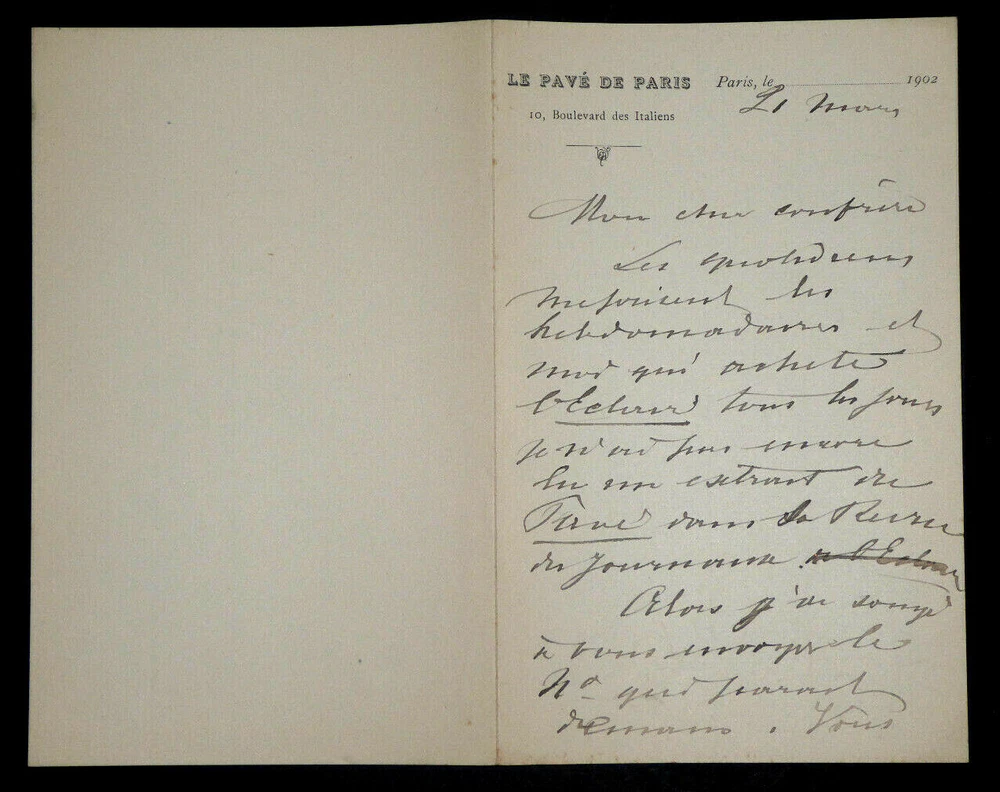 LE PAVÉ DE PARIS Paris, le 1902
10, Boulevard des Italiens
21 Mars
Mon cher confrère
Les quotidiens
méprisent les
hebdomadaires et
moi qui achète
l'Eclair tous les jours
je n'ai pas encore
lu un extrait du
Pavé dans la Revue
des Journaux. de l'Eclair
Alors j'ai songé
à vous envoyer le
No qui parait
demain. Vous